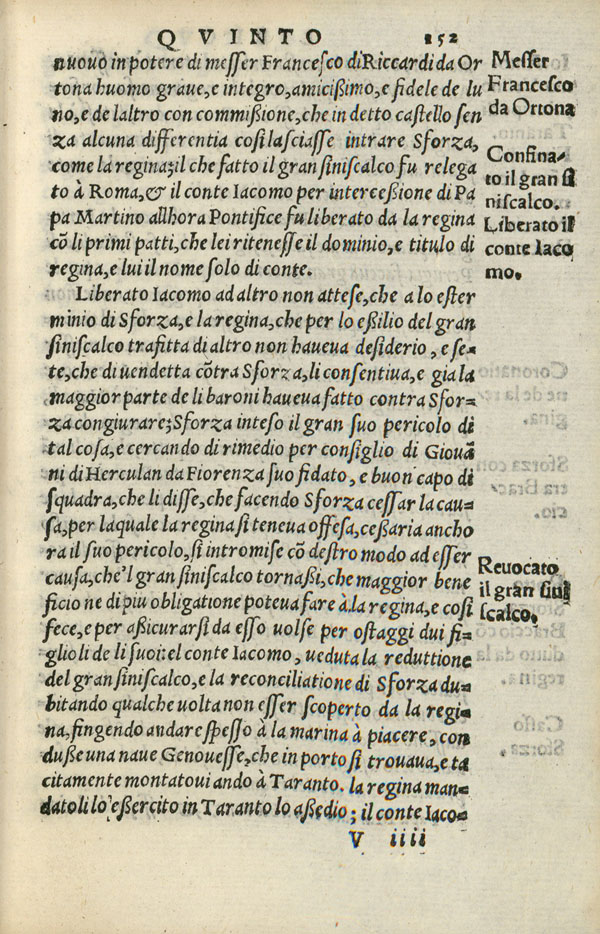 QVINTO 152
nuouo in potere di messer Francesco di Riccardi da Or
tona huomo graue, e integro, amicißimo, e fidele de lu
no, e de laltro con commißione, che in detto castello sen
za alcuna differentia cosi lasciasse intrare Sforza,
come la regina; il che fatto il gran siniscalco fu relega
to à Roma, & il conte Iacomo per interceßione di Pa
pa Martino allhora Pontifice fu liberato da la regina
cõ li primi patti, che lei ritenesse il dominio, e titulo di
regina, e lui il nome solo di conte.
Liberato Iacomo ad altro non attese, che a lo exter
minio di Sforza, e la regina, che per lo eßilio del gran
siniscalco trafitta di altro non haueua desiderio, e se=
te, che di uendetta cõtra Sforza, li consentiua, e gia la
maggior parte de li baroni haueua fatto contra Sfor=
za congiurare; Sforza inteso il gran suo pericolo di
tal cosa, e cercando di rimedio per consiglio di Giouã
ni di Herculan da Fiorenza suo fidato, e buon capo di
squadra, che li disse, che facendo Sforza cessar la cau=
sa, per laquale la regina si teneua offesa, ceßaria ancho
ra il suo pericolo, si intromise cõ destro modo ad esser
causa, che'l gran siniscalco tornaßi, che maggior bene
ficio ne di piu obligatione poteua fare à la regina, e cosi
fece, e per aßicurarsi da esso uolse per ostaggi dui fi=
glioli de li suoi: el conte Iacomo, ueduta la reduttione
del gran siniscalco, e la reconciliatione di Sforza du=
bitando qualche uolta non esser scoperto da la regi=
na, fingendo andare speßo à la marina à piacere, con
duße una naue Genouesse, che in porto si trouaua, e ta
citamente montatoui ando à Taranto. la regina man=
datoli lo eßercito in Taranto lo aßedio; il conte Iaco=
V iiii
Messer
Francesco
da Ortona
Confina=
to il gran si
niscalco.
Liberato il
conte Iaco
mo.
Reuocato
il gran sini
scalco.